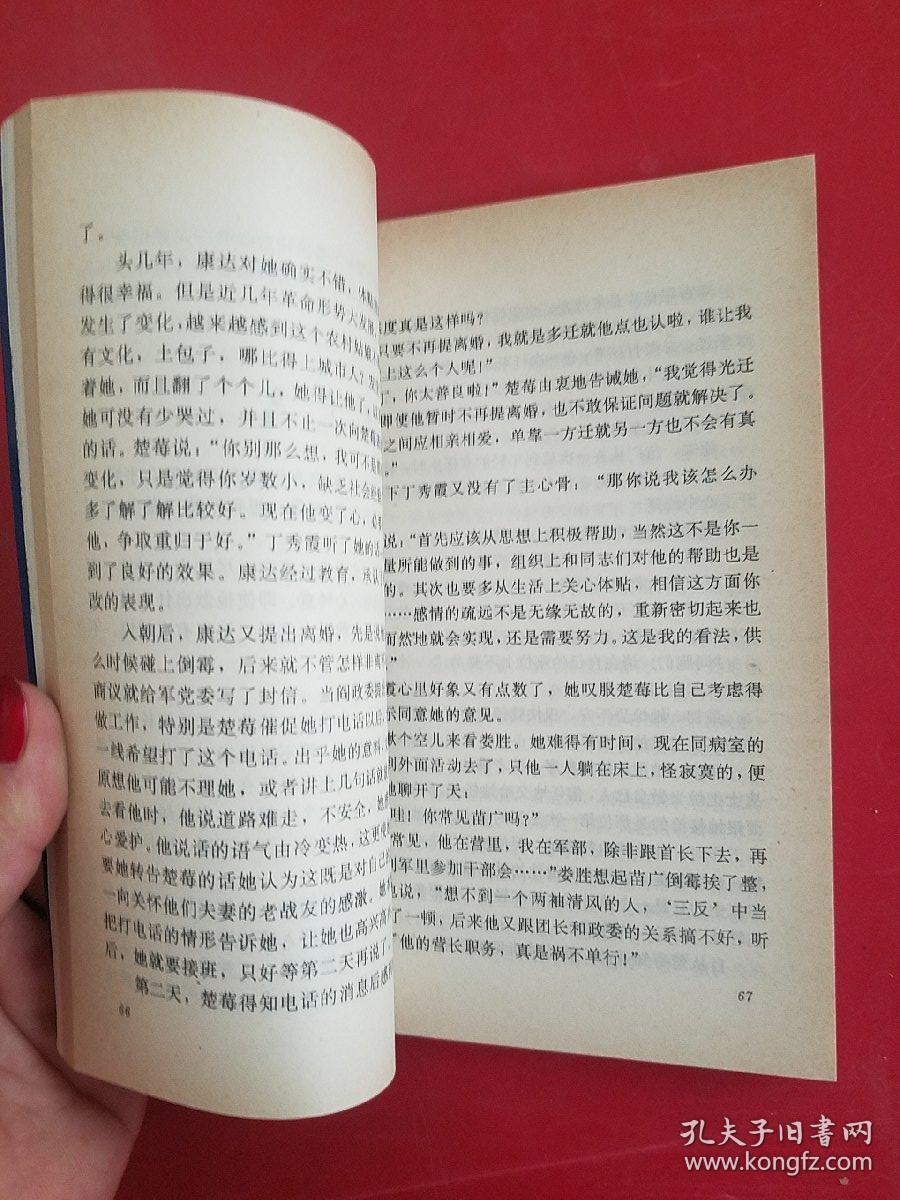 了。
头几年，康达对她确实不错，体贴
得很幸福。但是近几年革命形势大发展
发生了变化，越来越感到这个农村姑娘
有文化，土包子，哪比得上城市人？发
着她，而且翻了个个儿，她得让他了，以
她可没有少哭过，并且不止一次向楚莓
的话。楚莓说：“你别那么想，我可不是
变化，只是觉得你岁数小，缺乏社会经
多了解了解比较好。现在他变了心，
他，争取重归于好。”丁秀霞听了她的
到了良好的效果。康达经过教育，承认
改的表现。
入朝后，康达又提出离婚，先是说
么时候碰上倒霉，后来就不管怎样非离
商议就给军党委写了封信。当阎政委
做工作，特别是楚莓催促她打电话以后，
一线希望打了这个电话。出乎她的意料，
原想他可能不理她，或者讲上几句话就
去看他时，他说道路难走，不安全，她
心爱护。他说话的语气由冷变热，这更使
要她转告楚莓的话她认为这既是对自己
一向关怀他们夫妻的老战友的感激。她
把打电话的情形告诉她，让她也高兴高兴
后，她就要接班，只好等第二天再说了。
第二天，楚莓得知电话的消息后感
66
度真是这样吗？
只要不再提离婚，我就是多迁就他点也认啦，谁让我
上这么个人呢！”
丁，你太善良啦！”楚莓由衷地告诫她，“我觉得光迁
即使他暂时不再提离婚，也不敢保证问题就解决了。
之间应相亲相爱，单靠一方迁就另一方也不会有真
。”
下丁秀霞又没有了主心骨：“那你说我该怎么办
说：“首先应该从思想上积极帮助，当然这不是你一
量所能做到的事，组织上和同志们对他的帮助也是
的。其次也要多从生活上关心体贴，相信这方面你
……感情的疏远不是无缘无故的，重新密切起来也
而然地就会实现，还是需要努力。这是我的看法，供
”
霞心里好象又有点数了，她叹服楚莓比自己考虑得
示同意她的意见。
揪个空儿来看娄胜。她难得有时间，现在同病室的
到外面活动去了，只他一人躺在床上，怪寂寞的，便
他聊开了天：
哇！你常见苗广吗？”
常见，他在营里，我在军部，除非跟首长下去，再
到军里参加干部会……”娄胜想起苗广倒霉挨了整，
也说，“想不到一个两袖清风的人，‘三反’中当
了一顿，后来他又跟团长和政委的关系搞不好，听
他的营长职务，真是祸不单行！”
67
孔夫子旧书网
www.kongfz.com